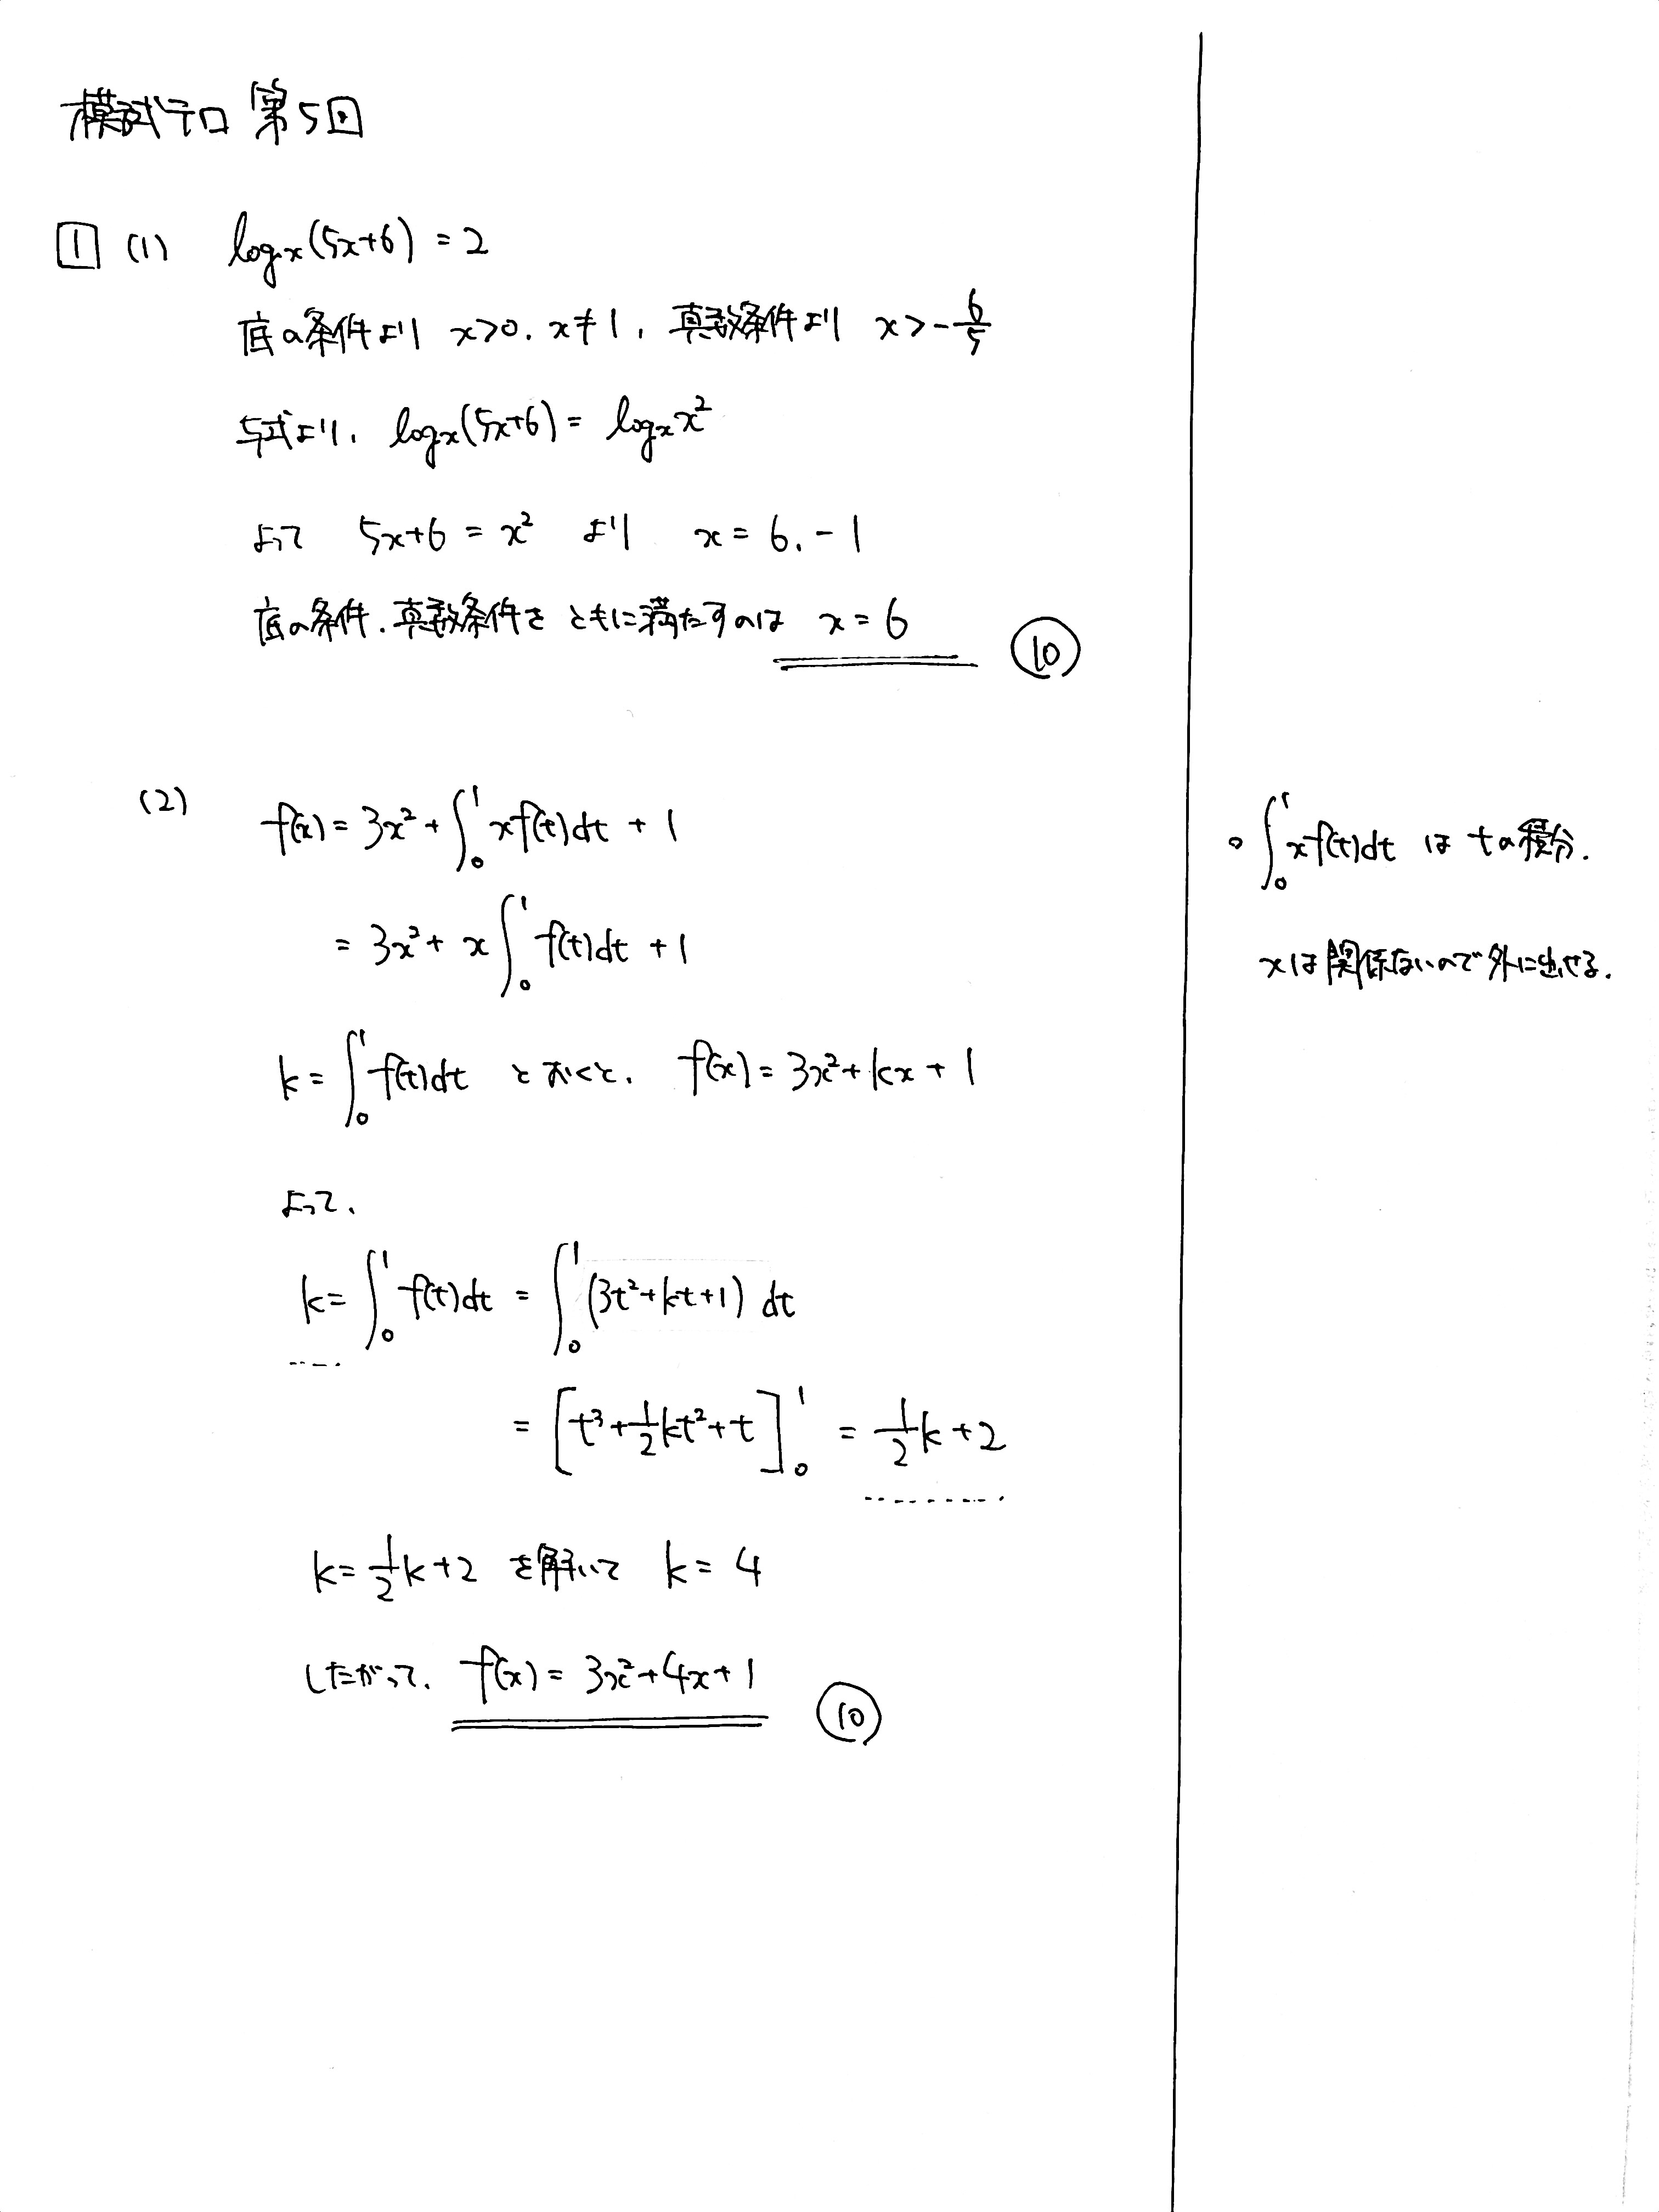 模試テロ 第5回
1 (1) log_x(5x+6) = 2
底の条件より x>0, x≠1, 真数条件より x>-6/5
与式より, log_x(5x+6) = log_x x²
よって 5x+6 = x² より x = 6, -1
底の条件, 真数条件を ともに満たすのは x = 6 ⑩
(2) f(x) = 3x² + ∫₀¹ xf(t)dt + 1
= 3x² + x∫₀¹ f(t)dt + 1
k = ∫₀¹ f(t)dt とおくと, f(x) = 3x² + kx + 1
よって,
k = ∫₀¹ f(t)dt = ∫₀¹ (3t²+kt+1) dt
= [t³ + 1/2 kt² + t]₀¹ = 1/2 k + 2
k = 1/2 k + 2 を解いて k = 4
したがって, f(x) = 3x² + 4x + 1 ⑩
○ ∫₀¹ xf(t)dt は tの積分.
xは関係ないので外に出せる.